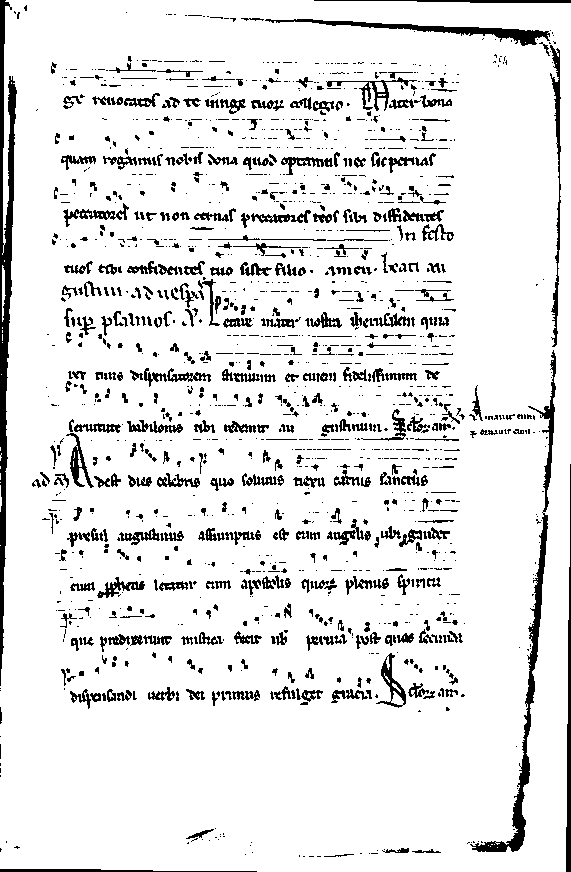 254
ge revocatos ad te iunge tuorum collegio. Mater bona
quam rogamus nobis dona quod optamus nec sic spernas
peccatores ut non cernas precatores reos sibi diffidentes
In festo
tuos tibi confidentes tuo siste filio. amen. beati au
gustini. ad vesp͛as
sup͛ psalmos. a͛. Letare mater nostra iherusalem quia
rex tuus dispensatorem strenuum et civem fidelissimum de
servitute babilonis tibi redemit au gustinum. sc͛lorꝝ am͛.
Amavit eum d
⁊ ornavit eum
ad m͛ Adest dies celebris quo solutus nexu carnis sanctus
presul augustinus assumptus est cum angelis ubi gaudet
cum ꝓphetis letatur cum apostolis quorꝝ plenus spiritu
que predixerunt mistica fecit nob͛ pervia post quos secunda
dispensandi verbi dei primus refulget gracia. Sc͛lorꝝ am͛.